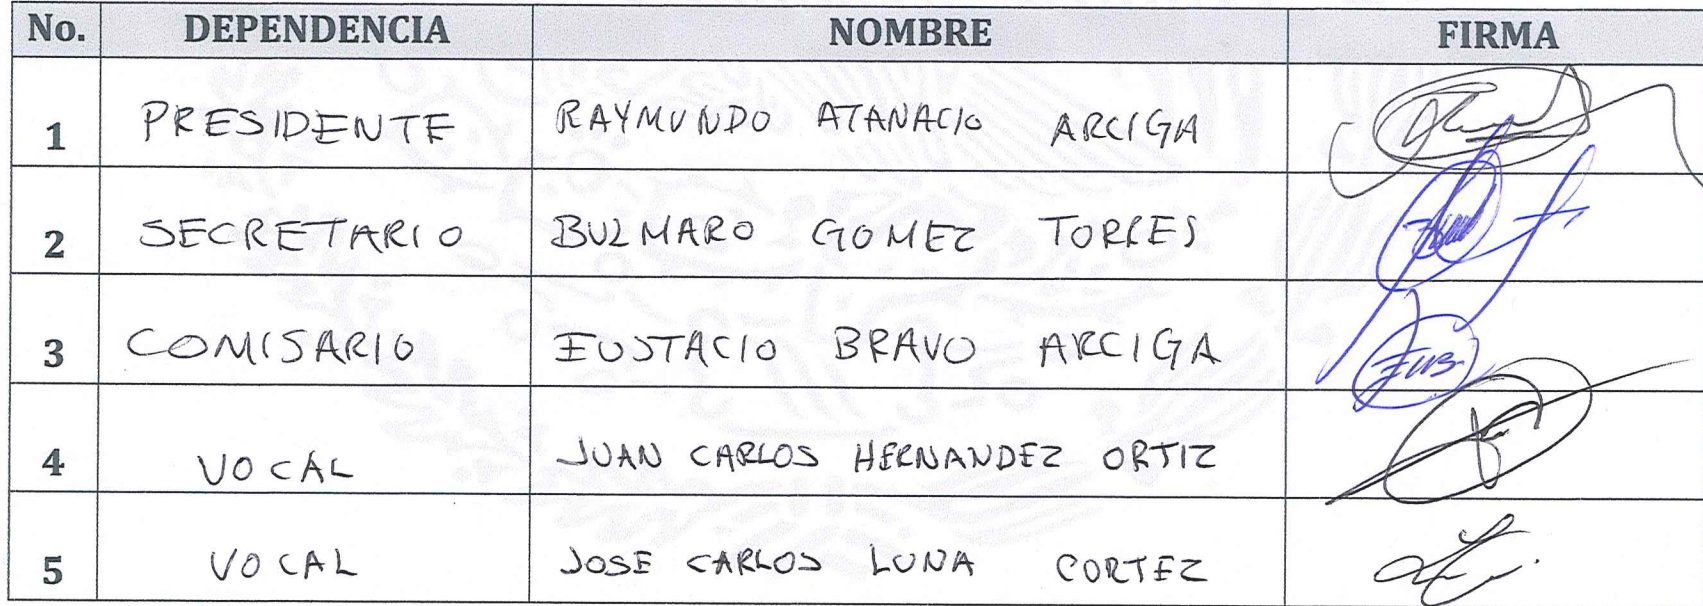 No. DEPENDENCIA NOMBRE FIRMA
1 PRESIDENTE RAYMUNDO ATANACIO ARCIGA
2 SECRETARIO BULMARO GOMEZ TORRES
3 COMISARIO EUSTACIO BRAVO ARCIGA
4 VOCAL JUAN CARLOS HERNANDEZ ORTIZ
5 VOCAL JOSE CARLOS LUNA CORTEZ